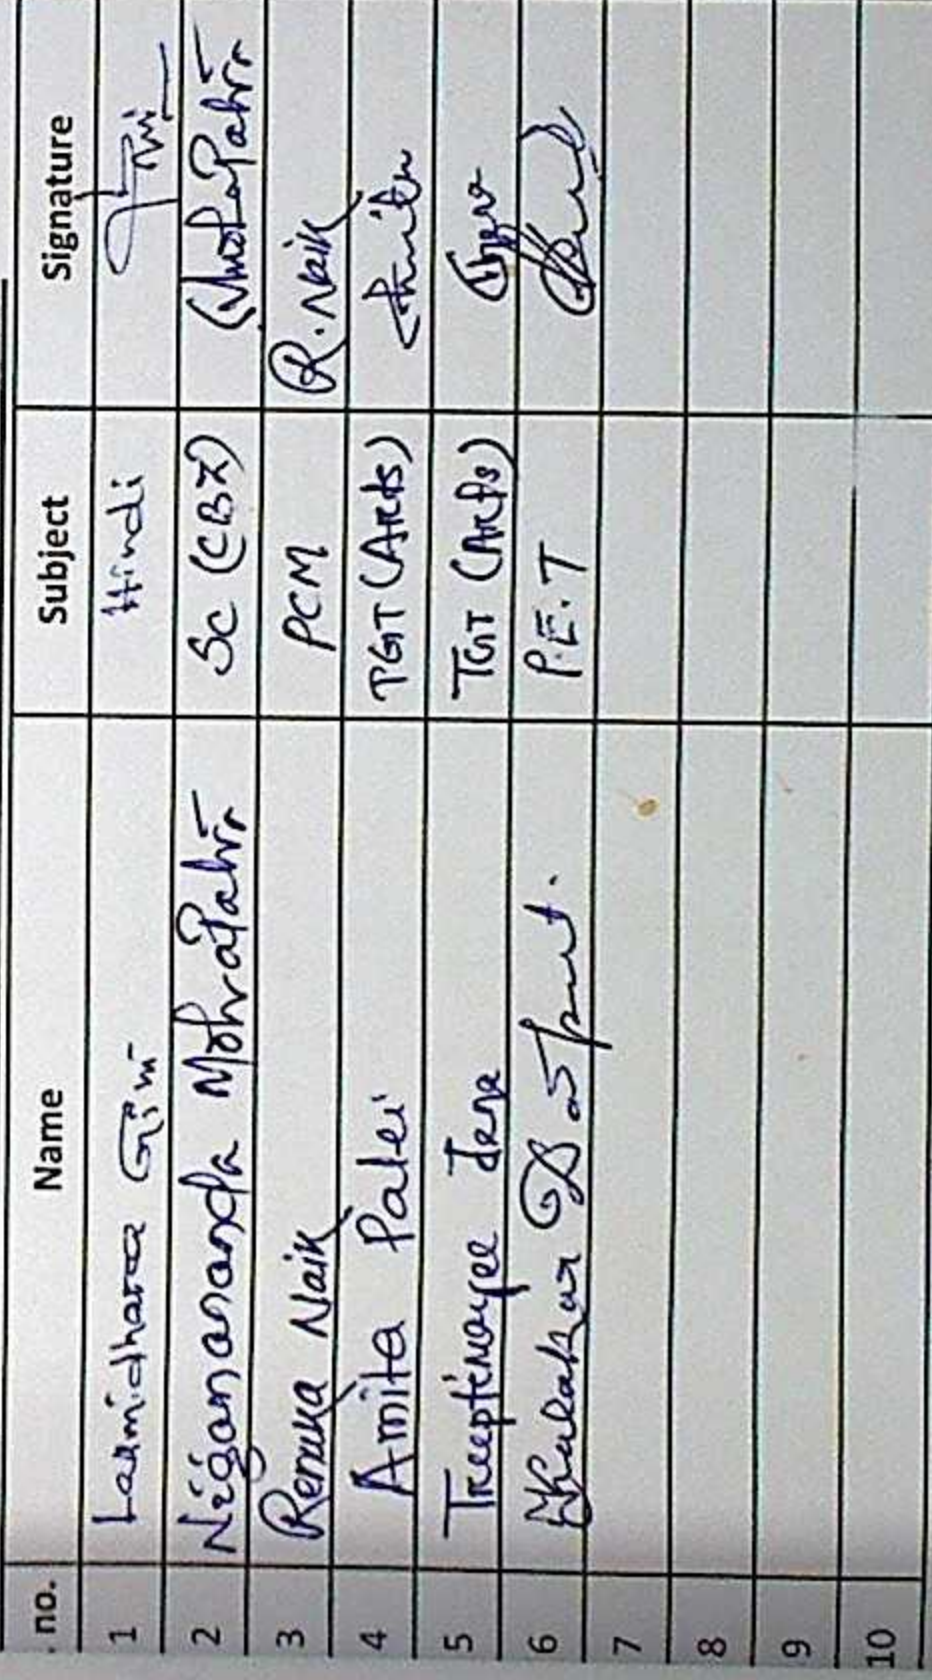 . no. Name Subject Signature
1 Laxmidhara Giri Hindi
2 Nigamananda Mohapatra Sc (CBZ) Mohapatra
3 Renuka Naik PCM R. Naik
4 Amita Palei TGT (Arts) Amita
5 Treeptimayee Jena TGT (Arts)
6 P.E.T
7
8
9
10